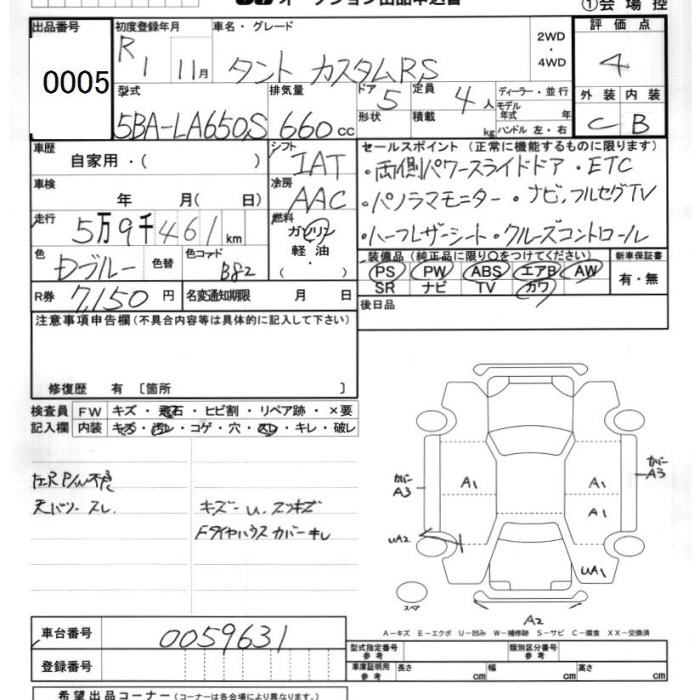 オークション出品申込書
①会場控
出品番号 0005
初度登録年月 R1 11月
車名・グレード タント カスタムRS
2WD・4WD
評価点 4
型式 5BA-LA650S
排気量 660cc
ドア 5
形状
定員 4人
積載 kg
ディーラー・並行
モデル年式 年
ハンドル 左・右
外装 C
内装 B
車歴 自家用・( )
シフト IAT
車検 年 月( 日)
冷房 AAC
走行 5万9千461km
燃料 ガソリン 軽油・
色 Dブルー
色替
色コード B82
R券 7,150円
名変通知期限 月 日
セールスポイント(正常に機能するものに限ります)
・両側パワースライドドア・ETC
・パノラマモニター・ナビ,フルセグTV
・ハーフレザーシート・クルーズコントロール
装備品(純正品に限り○をつけてください)
PS PW ABS エアB AW
SR ナビ TV カワ
新車保証書 有・無
後日品
注意事項申告欄(不具合内容等は具体的に記入して下さい)
修復歴 有〔箇所 〕
検査員記入欄
FW キズ・飛石・ヒビ割・リペア跡・×要
内装 キズ・汚レ・コゲ・穴・スレ・キレ・破レ
左R P/W不良
天バリ スレ.
キズー U. スリキズ
Fタイヤハウス カバーキレ
カバー A3
A1
A1
A1
カバー A3
UA2
UA1
スペア
A2
A-キズ E-エクボ U-凹み W-補修跡 S-サビ C-腐食 XX-交換済
車台番号 0059631
登録番号
型式指定番号 参考
類別区分番号 参考
車庫証明用 参考
長さ cm
幅 cm
高さ cm
希望出品コーナー(コーナーは各会場により異なります。)